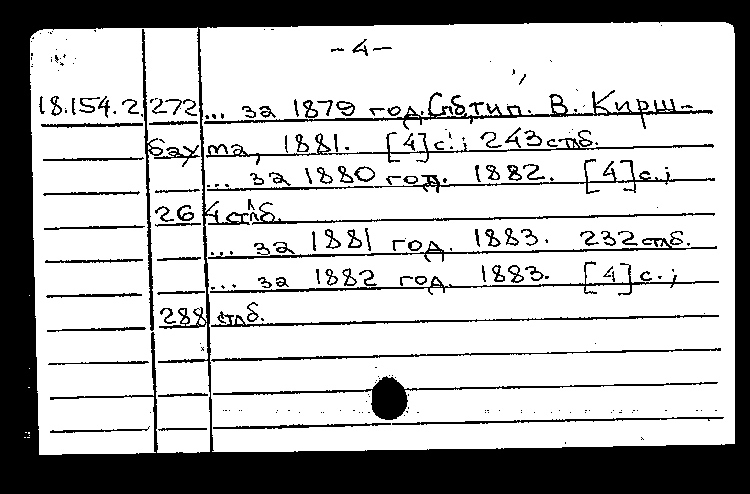 -4-
18.154.2 272 ... за 1879 год. Спб, тип. В. Кирш-
баума, 1881. [4] с.; 243 стлб.
... за 1880 год. 1882. [4] с.;
264 стлб.
... за 1881 год. 1883. 232 стлб.
... за 1882 год. 1883. [4] с.;
288 стлб.